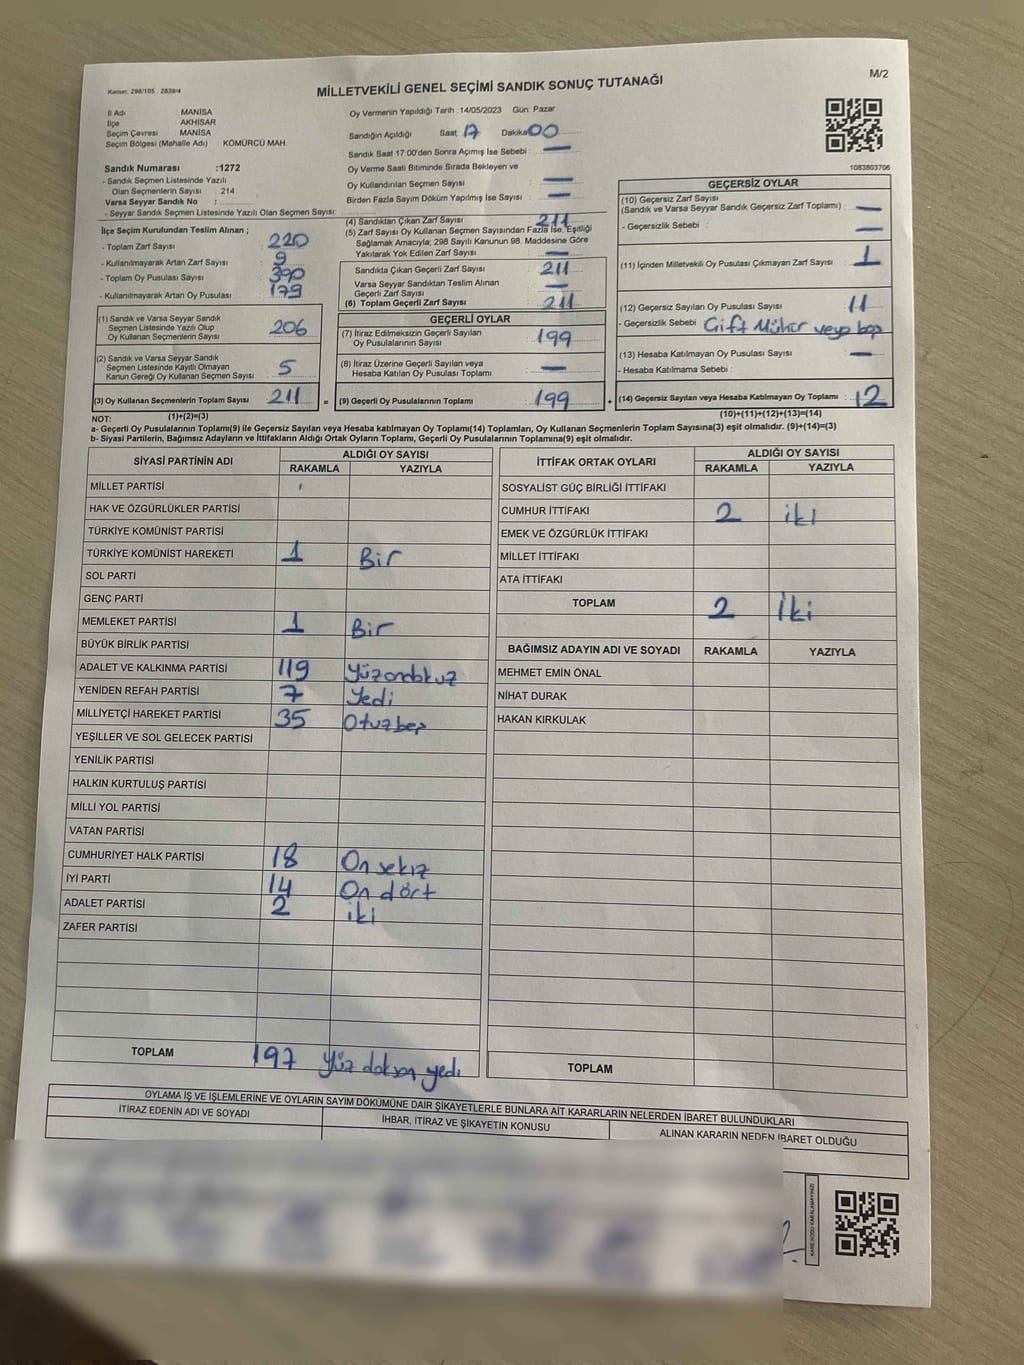 M/2
Kanun: 298/105 2839/4
MİLLETVEKİLİ GENEL SEÇİMİ SANDIK SONUÇ TUTANAĞI
İl Adı MANİSA
İlçe AKHİSAR
Seçim Çevresi MANİSA
Seçim Bölgesi (Mahalle Adı) KÖMÜRCÜ MAH.
Sandık Numarası :1272
- Sandık Seçmen Listesinde Yazılı
Olan Seçmenlerin Sayısı : 214
Varsa Seyyar Sandık No :
- Seyyar Sandık Seçmen Listesinde Yazılı Olan Seçmen Sayısı:
Oy Vermenin Yapıldığı Tarih :14/05/2023 Gün: Pazar
Sandığın Açıldığı Saat 17 Dakika 00
Sandık Saat 17.00'den Sonra Açımış İse Sebebi : —
Oy Verme Saati Bitiminde Sırada Bekleyen ve
Oy Kullandırılan Seçmen Sayısı : —
Birden Fazla Sayım Döküm Yapılmış İse Sayısı : —
1083803706
İlçe Seçim Kurulundan Teslim Alınan ;
- Toplam Zarf Sayısı : 220
- Kullanılmayarak Artan Zarf Sayısı : 9
- Toplam Oy Pusulası Sayısı : 390
- Kullanılmayarak Artan Oy Pusulası : 179
(1) Sandık ve Varsa Seyyar Sandık
Seçmen Listesinde Yazılı Olup
Oy Kullanan Seçmenlerin Sayısı : 206
(2) Sandık ve Varsa Seyyar Sandık
Seçmen Listesinde Kayıtlı Olmayan
Kanun Gereği Oy Kullanan Seçmen Sayısı : 5
(3) Oy Kullanan Seçmenlerin Toplam Sayısı : 211
(1)+(2)=(3)
(4) Sandıktan Çıkan Zarf Sayısı : 211
(5) Zarf Sayısı Oy Kullanan Seçmen Sayısından Fazla İse, Eşitliği
Sağlamak Amacıyla; 298 Sayılı Kanunun 98. Maddesine Göre
Yakılarak Yok Edilen Zarf Sayısı : —
Sandıkta Çıkan Geçerli Zarf Sayısı : 211
Varsa Seyyar Sandıktan Teslim Alınan
Geçerli Zarf Sayısı : —
(6) Toplam Geçerli Zarf Sayısı : 211
GEÇERLİ OYLAR
(7) İtiraz Edilmeksizin Geçerli Sayılan
Oy Pusulalarının Sayısı : 199
(8) İtiraz Üzerine Geçerli Sayılan veya
Hesaba Katılan Oy Pusulası Toplamı : —
= (9) Geçerli Oy Pusulalarının Toplamı : 199
GEÇERSİZ OYLAR
(10) Geçersiz Zarf Sayısı
(Sandık ve Varsa Seyyar Sandık Geçersiz Zarf Toplamı) : —
- Geçersizlik Sebebi : —
(11) İçinden Milletvekili Oy Pusulası Çıkmayan Zarf Sayısı : 1
(12) Geçersiz Sayılan Oy Pusulası Sayısı : 11
- Geçersizlik Sebebi : Çift Mühür veya boş
(13) Hesaba Katılmayan Oy Pusulası Sayısı : —
- Hesaba Katılmama Sebebi :
+ (14) Geçersiz Sayılan veya Hesaba Katılmayan Oy Toplamı : 12
(10)+(11)+(12)+(13)=(14)
NOT:
a- Geçerli Oy Pusulalarının Toplamı(9) ile Geçersiz Sayılan veya Hesaba katılmayan Oy Toplamı(14) Toplamları, Oy Kullanan Seçmenlerin Toplam Sayısına(3) eşit olmalıdır. (9)+(14)=(3)
b- Siyasi Partilerin, Bağımsız Adayların ve İttifakların Aldığı Ortak Oyların Toplamı, Geçerli Oy Pusulalarının Toplamına(9) eşit olmalıdır.
SİYASİ PARTİNİN ADI
ALDIĞI OY SAYISI
RAKAMLA YAZIYLA
MİLLET PARTİSİ
HAK VE ÖZGÜRLÜKLER PARTİSİ
TÜRKİYE KOMÜNİST PARTİSİ
TÜRKİYE KOMÜNİST HAREKETİ 1 Bir
SOL PARTİ
GENÇ PARTİ
MEMLEKET PARTİSİ 1 Bir
BÜYÜK BİRLİK PARTİSİ
ADALET VE KALKINMA PARTİSİ 119 Yüzondokuz
YENİDEN REFAH PARTİSİ 7 Yedi
MİLLİYETÇİ HAREKET PARTİSİ 35 Otuzbeş
YEŞİLLER VE SOL GELECEK PARTİSİ
YENİLİK PARTİSİ
HALKIN KURTULUŞ PARTİSİ
MİLLİ YOL PARTİSİ
VATAN PARTİSİ
CUMHURİYET HALK PARTİSİ 18 On sekiz
İYİ PARTİ 14 On dört
ADALET PARTİSİ 2 iki
ZAFER PARTİSİ
TOPLAM 197 Yüz doksan yedi
İTTİFAK ORTAK OYLARI
ALDIĞI OY SAYISI
RAKAMLA YAZIYLA
SOSYALİST GÜÇ BİRLİĞİ İTTİFAKI
CUMHUR İTTİFAKI 2 iki
EMEK VE ÖZGÜRLÜK İTTİFAKI
MİLLET İTTİFAKI
ATA İTTİFAKI
TOPLAM 2 İki
BAĞIMSIZ ADAYIN ADI VE SOYADI RAKAMLA YAZIYLA
MEHMET EMİN ÖNAL
NİHAT DURAK
HAKAN KIRKULAK
TOPLAM
OYLAMA İŞ VE İŞLEMLERİNE VE OYLARIN SAYIM DÖKÜMÜNE DAİR ŞİKAYETLERLE BUNLARA AİT KARARLARIN NELERDEN İBARET BULUNDUKLARI
İTİRAZ EDENİN ADI VE SOYADI
İHBAR, İTİRAZ VE ŞİKAYETİN KONUSU
ALINAN KARARIN NEDEN İBARET OLDUĞU
KARE KODU KARALAMAYINIZ!